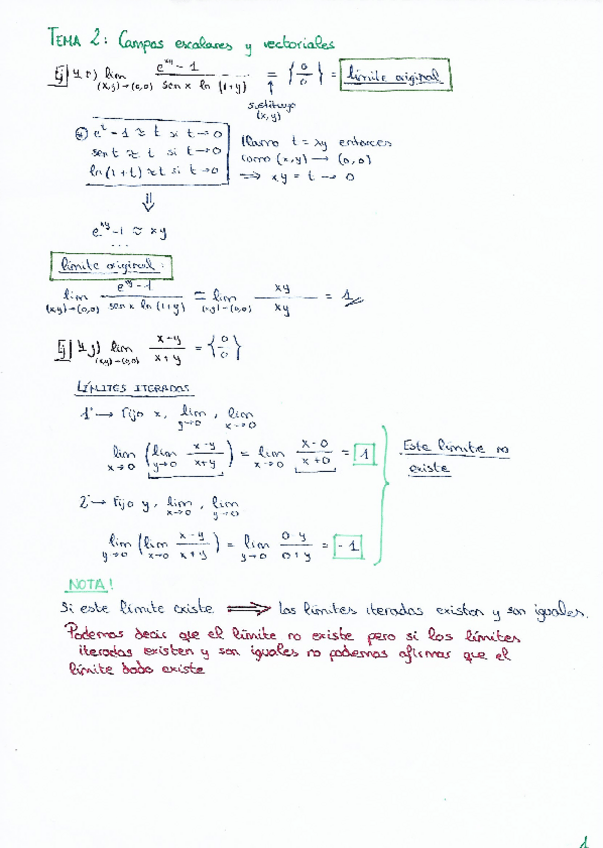 TEMA 2: Campos escalares y vectoriales
Ej 4r) lim (x,y)→(0,0) e^xy - 1 / sen x ln (1+y) = {0/0} = límite original
↑
sustituyo
(x,y)
* e^t - 1 ≈ t si t→0
sen t ≈ t si t→0
ln(1+t) ≈ t si t→0
Como t = xy entonces
como (x,y) → (0,0)
⇒ xy = t → 0
⇓
e^xy - 1 ≈ xy
...
límite original:
lim (x,y)→(0,0) e^xy - 1 / sen x ln (1+y) = lim (x,y)→(0,0) xy / xy = 1
Ej 4j) lim (x,y)→(0,0) x-y / x+y = {0/0}
LÍMITES ITERADOS
1º → Fijo x, lim y→0, lim x→0
lim x→0 (lim y→0 x-y / x+y) = lim x→0 x-0 / x+0 = 1
Este límite no
existe
2º → Fijo y, lim x→0, lim y→0
lim y→0 (lim x→0 x-y / x+y) = lim y→0 0-y / 0+y = -1
NOTA!
Si este límite existe ⇒ los límites iterados existen y son iguales.
Podemos decir que el límite no existe pero si los límites
iterados existen y son iguales no podemos afirmar que el
límite dado existe
1